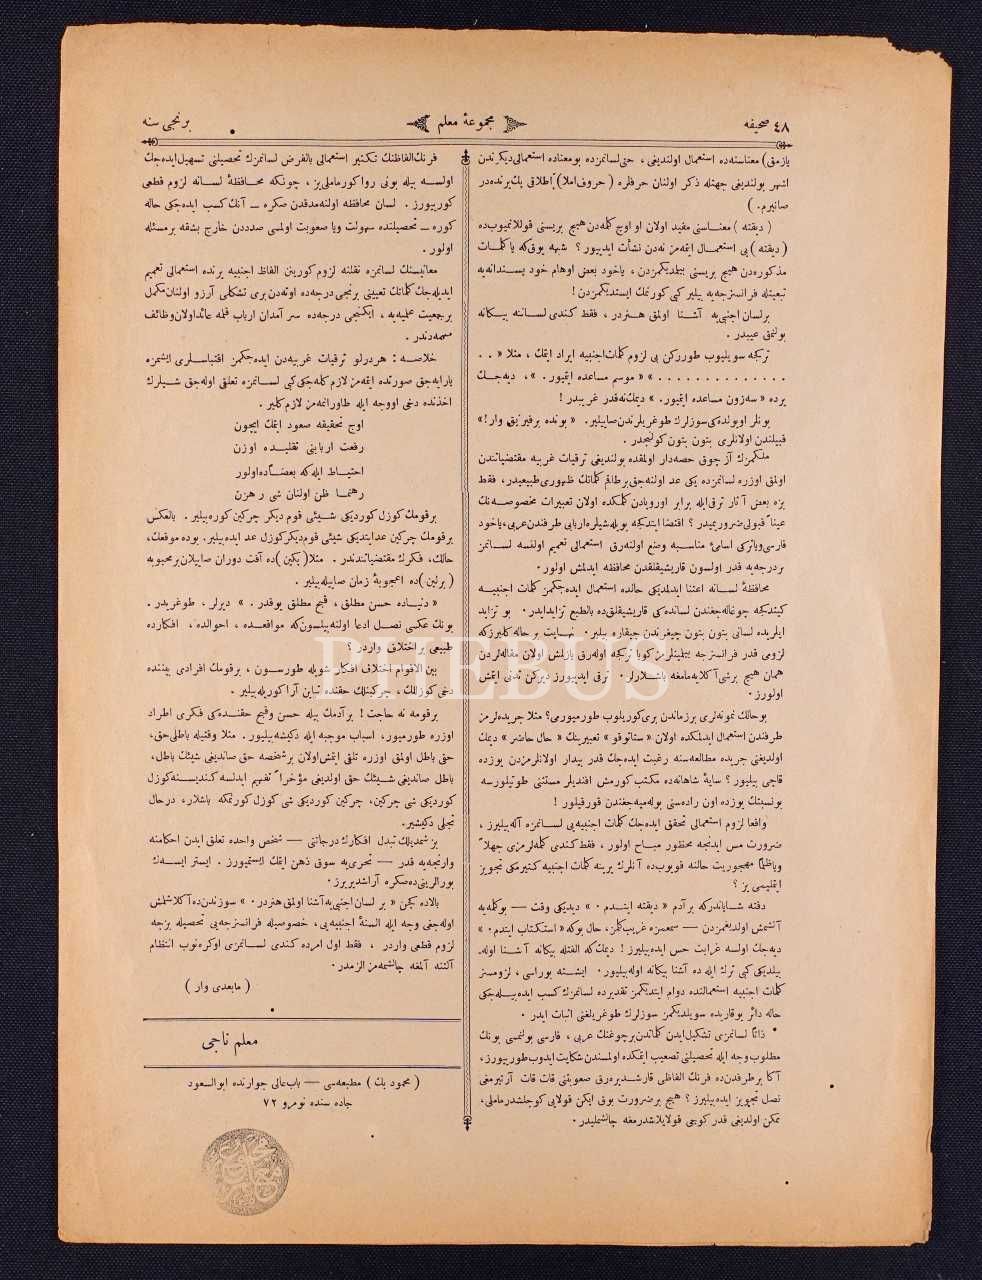 ٤٨ صحیفه
مجموعهٔ معلم
برنجی سنه
یازمق) معناسنه‌ده استعمال اولندیغی، حتی لسانمزده بومعناده استعمالی دیکرندن
اشهر بولندیغی جهتله ذکر اولنان حرفلره (حروف املا) اطلاقی یك یرنده‌در
صانیرم. )
( دیقته ) معناسنی مفید اولان او اوج کلمه‌دن هیچ بریسنی قوللانمیوب‌ده
( دیقته ) یی استعمال ایتمه‌من نه‌دن نشأت ایدییور؟ شبهه یوق‌که یا کلمات
مذکوره‌دن هیچ بریسنی بیلمدیکمزدن، یاخود بعض اوهام خود پسندانه‌یه
تبعیتله فرانسزجه‌یه بیلیر کبی کورنمك ایستدیکمزدن !
برلسان اجنبی‌یه آشنا اولمق هنردر، فقط کندی لساننه بیکانه
بولنمق عیبدر .
ترکجه سویلیوب طوررکن بی لزوم کلمات اجنبیه ایراد ایتمك، مثلا « . .
. . . . . . . . . . . . . . » « موسم مساعده ایتمیور. »، دیه‌جك
یرده « سه‌زون مساعده ایتمیور. » دیمك نه‌قدر غریبدر !
بونلر اویولده‌کی سوزلرك طوغریلرندن صاییلیر. « بونده برفیزیق وار ! »
قبیلندن اولانلری بتون بتون کولنجدر .
ملکمزك آز چوق حصه‌دار اولمقده بولندیغی ترقیات غربیه مقتضیاتندن
اولمق اوزره لسانمزده یکی عد اولنه‌جق برطاقم کلماتك ظهوری طبیعیدر، فقط
بزه بعض آثار ترقی ایله برابر اوروپادن کلمکده اولان تعبیرات مخصوصه‌نك
عیناً قبولی ضروریمیدر ؟ اقتضا ایتدکجه بویله شیلره اربابی طرفندن عربی، یاخود
فارسی ویا ترکی اسامیٔ مناسبه وضع اولنه‌رق استعمالی تعمیم اولنسه لسانمز
بردرجه‌یه قدر اولسون قاریشیقلقدن محافظه ایدلمش اولور .
محافظهٔ لسانه اعتنا ایدلمدیکی حالده استعمال ایده‌جکمز کلمات اجنبیه
کیتدکجه چوغاله‌جغندن لسانده‌کی قاریشیقلق‌ده بالطبع تزاید ایدر . بو تزاید
ایلریده لسانی بتون بتون چیغرندن چیقاره بیلیر . نهایت بر حاله کلیرزکه
لزومی قدر فرانسزجه بیلمینلرمز کویا ترکجه اوله‌رق یازلمش اولان مقاله‌لردن
همان هیچ برشی آکلایه‌مامغه باشلارلر . ترقی ایدییورز دیرکن تدنی ایتمش
اولورز .
بوحالك نمونه‌لری برزماندن بری کوریلوب طورمیورمی؟ مثلا جریده‌لرمز
طرفندن استعمال ایدلمکده اولان « ستاتوقو » تعبیرینك « حال حاضر » دیمك
اولدیغنی جریده مطالعه‌سنه رغبت ایده‌جك قدر بیدار اولانلرمزدن یوزده
قاچی بیلیور ؟ سایهٔ شاهانه‌ده مکتب کورمش افندیلر مستثنی طوتیلورسه
بونسبتك یوزده اون راده‌سنی بوله‌میه‌جغندن قورقیلور !
واقعا لزوم استعمالی تحقق ایده‌جك کلمات اجنبیه‌یی لسانمزه آله بیلیرز،
ضرورت مس ایدنجه محظور مباح اولور، فقط کندی کلمه‌لرمزی جهلاً
ویا ظلماً مهجوریت حالنه قویوب‌ده آنلرك یرینه کلمات اجنبیه کتیرمکی تجویز
ایتملیمی یز ؟
دقته شایاندرکه برآدم « دیقته ایتدم . » دیدیکی وقت — بو کلمه‌یه
آلشمش اولدیغمزدن — سمعمزه غریب کلمز، حال بوکه « استکتاب ایتدم . »
دیه‌جك اولسه غرابت حس ایده‌بیلیرز ! دیمك‌که الفتله بیکانه آشنا اوله
بیلدیکی کبی ترك ایله ده آشنا بیکانه اوله‌بیلیور . ایشته بوراسی، لزومسز
کلمات اجنبیه استعمالنده دوام ایتدیکمز تقدیرده لسانمزك کسب ایده‌بیله‌جکی
حاله دائر یوقاریده سویلدیکمز سوزلرك طوغریلغنی اثبات ایدر .
ذاتاً لسانمزی تشکیل ایدن کلماتدن برچوغنك عربی، فارسی بولنمسی بونك
مطلوب وجه ایله تحصیلنی تصعیب ایتمکده اولمسندن شکایت ایدوب طورییورز،
آکا برطرفدن‌ده فرنك الفاظی قارشدیره‌رق صعوبتنی قات قات آرتیرمغی
نصل تجویز ایده‌بیلیرز ؟ هیچ برضرورت یوق ایکن قولایی کوجلشدرملی،
ممکن اولدیغی قدر کوجی قولایلاشدرمغه چالشملیدر .
فرنك الفاظنك تکثیر استعمالی بالفرض لسانمزك تحصیلنی تسهیل ایده‌جك
اولسه بیله بونی روا کورماملی‌یز، چونکه محافظهٔ لسانه لزوم قطعی
کورییورز . لسان محافظه اولنه‌مدقدن صکره — آنك کسب ایده‌جکی حاله
کوره — تحصیلنده سهولت ویا صعوبت اولمسی صددن خارج بشقه برمسئله
اولور .
معانیسنك لسانمزه نقلنه لزوم کورینن الفاظ اجنبیه یرنده استعمالی تعمیم
ایدیله‌جك کلماتك تعیینی برنجی درجه‌ده اوته‌دن بری تشکلی آرزو اولنان مکمل
برجمعیت علمیه‌یه، ایکنجی درجه‌ده سرآمدان ارباب قلمه عائد اولان وظائف
مهمه‌دندر .
خلاصه : هردرلو ترقیات غربیه‌دن ایده‌جکمز اقتباسلری ایشمزه
یارایه‌جق صورتده ایتمه‌مز لازم کله‌جکی کبی لسانمزه تعلق اوله‌جق شیلرك
اخذنده دخی اووجه ایله طاورانمه‌مز لازم کلیر .
اوج تحقیقه صعود ایتمك ایچون
رفعت اربابنی تقلیده اوزن
احتیاط ایله‌که بعضاً ده اولور
رهنما ظن اولنان شی رهزن
برقومك کوزل کوردیکی شیئی قوم دیکر چرکین کوره‌بیلیر. بالعکس
برقومك چرکین عد ایتدیکی شیئی قوم دیکر کوزل عد ایده‌بیلیر. بوده موقعك،
حالك، فکرك مقتضیاتندندر . مثلا ( پکین ) ده آفت دوران صاییلان برمحبوبه
( برلین ) ده اعجوبهٔ زمان صاییله‌بیلیر .
« دنیاده حسن مطلق، قبح مطلق یوقدر . » دیرلر، طوغریدر .
بونك عکسی نصل ادعا اولنه‌بیلسون‌که مواقعده، احوالده، افکارده
طبیعی براختلاف واردر ؟
بین الاقوام اختلاف افکار شویله طورسون، برقومك افرادی بیننده
دخی کوزللك، چرکینلك حقنده تباین آرا کوریله‌بیلیر .
برقومه نه حاجت ! برآدمك بیله حسن وقبح حقنده‌کی فکری اطراد
اوزره طورمیور، اسباب موجبه ایله دکیشه‌بیلیور . مثلا وقتیله باطلی حق،
حق باطل اولمق اوزره تلقی ایتمش اولان برشخصه حق صاندیغی شیئك باطل،
باطل صاندیغی شیئك حق اولدیغی مؤخراً تفهیم ایدلسه کندیسنه کوزل
کوردیکی شی چرکین، چرکین کوردیکی شی کوزل کورنمکه باشلار، درحال
تجلی دکیشیر.
بز شمدیلك تبدل افکارك درجاتنی — شخص واحده تعلق ایدن احکامنه
وارنجه‌یه قدر — تحری‌یه سوق ذهن ایتمك ایستمیورز . ایستر ایسه‌ك
بورالرینی‌ده صکره آراشدیریرز .
بالاده کچن « بر لسان اجنبی‌یه آشنا اولمق هنردر . » سوزندن‌ده آکلاشلمش
اوله‌جغی وجه ایله السنهٔ اجنبیه‌یی، خصوصیله فرانسزجه‌یی تحصیله بزجه
لزوم قطعی واردر ، فقط اول امرده کندی لسانمزی اوکره‌نوب انتظام
آلتنه آلمغه چالشمه‌مز الزمدر .
( مابعدی وار )
معلم ناجی
( محمود بك ) مطبعه‌سی — باب عالی جوارنده ابوالسعود
جاده سنده نومرو ٧٢
PHEBUS